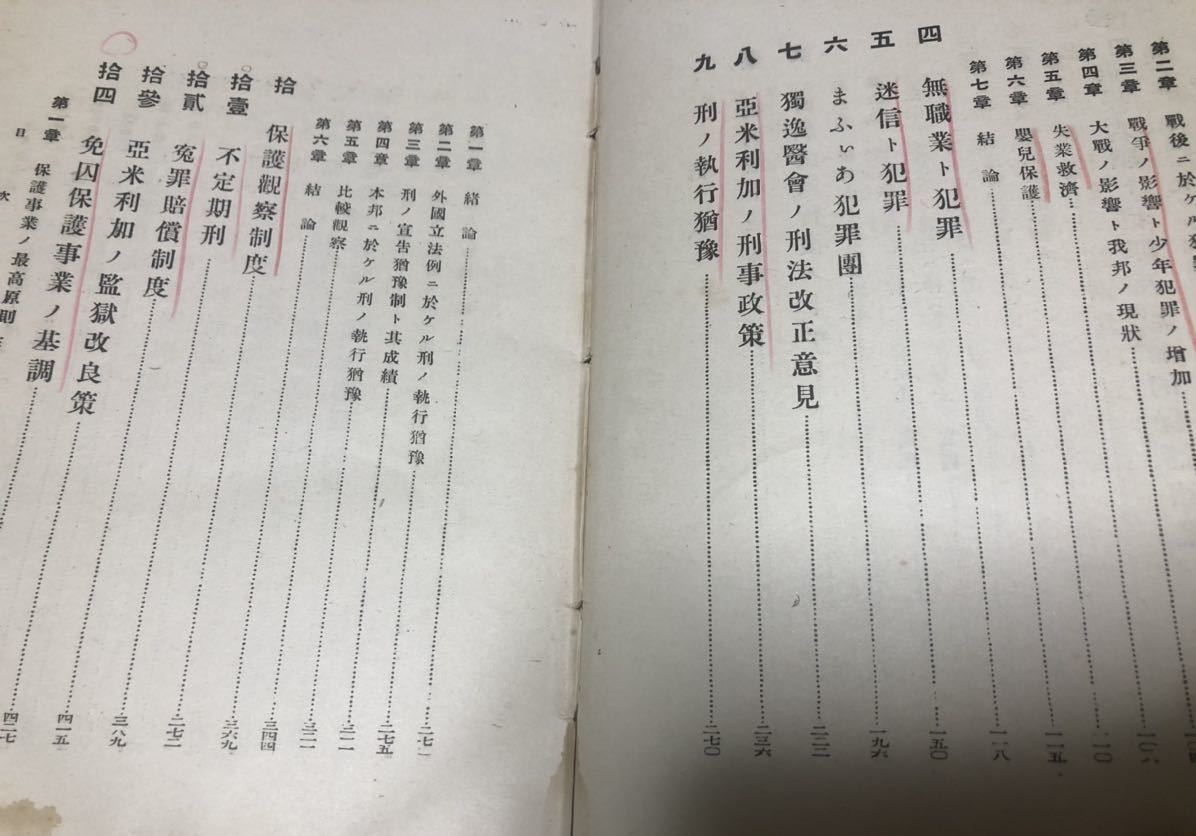 第二章 戰後ニ於ケル
第三章 戰爭ノ影響ト少年犯罪ノ增加
第四章 大戰ノ影響ト我邦ノ現狀
第五章 失業救濟 一〇六
第六章 嬰兒保護 一一〇
第七章 結論 一一五
四 無職業ト犯罪 一一八
五 迷信ト犯罪 一五〇
六 まふぃあ犯罪團 一九六
七 獨逸醫會ノ刑法改正意見 二二二
八 亞米利加ノ刑事政策 二三六
九 刑ノ執行猶豫 二七〇
第一章 緒論 二七一
第二章 外國立法例ニ於ケル刑ノ執行猶豫 二七二
第三章 刑ノ宣告猶豫制ト其成績 二七五
第四章 本邦ニ於ケル刑ノ執行猶豫 三一一
第五章 比較觀察 三二一
第六章 結論
拾 保護觀察制度 三四四
拾壹 不定期刑 三六九
拾貳 冤罪賠償制度
拾參 亞米利加ノ監獄改良策 三八九
拾四 免囚保護事業ノ基調 四一五
第一章 保護事業ノ最高原則 四二七
目次